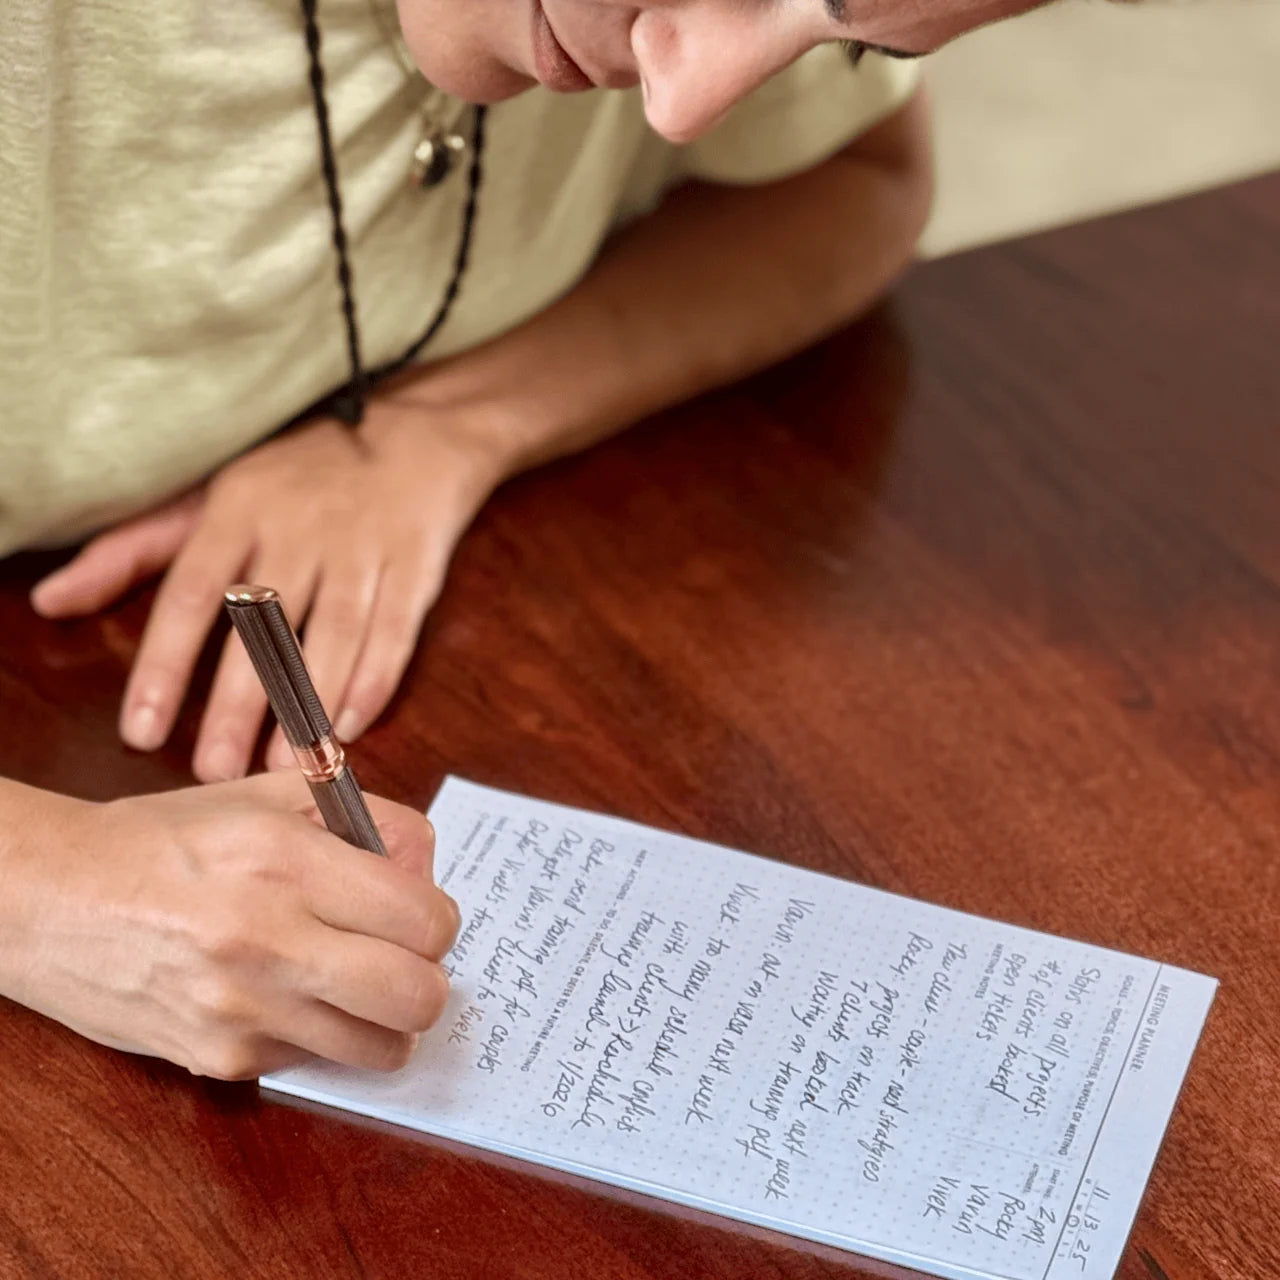 MEETING PLANNER
11 13 25
GOALS - TOPICS, OBJECTIVES, PURPOSE OF MEETING
Stats on all projects
# of clients booked
open tickets
START TIME: 2 pm
ATTENDEES:
Roty
Varun
Vivek
MEETING NOTES
New client - couple - need strategies
Roty: projects on track
7 clients booked next week
Waiting on training pdf
Varun: out on vaca next week
Vivek: to many schedule conflicts
with clients → Reschedule
training launch to 1/2026
NEXT ACTIONS - TO DO, DELEGATE OR DEFER TO A FUTURE MEETING
Roty: send training pdf for couples
Delegate Varun's client to Vivek
Defer Vivek's training to
THIS MEETING WAS: